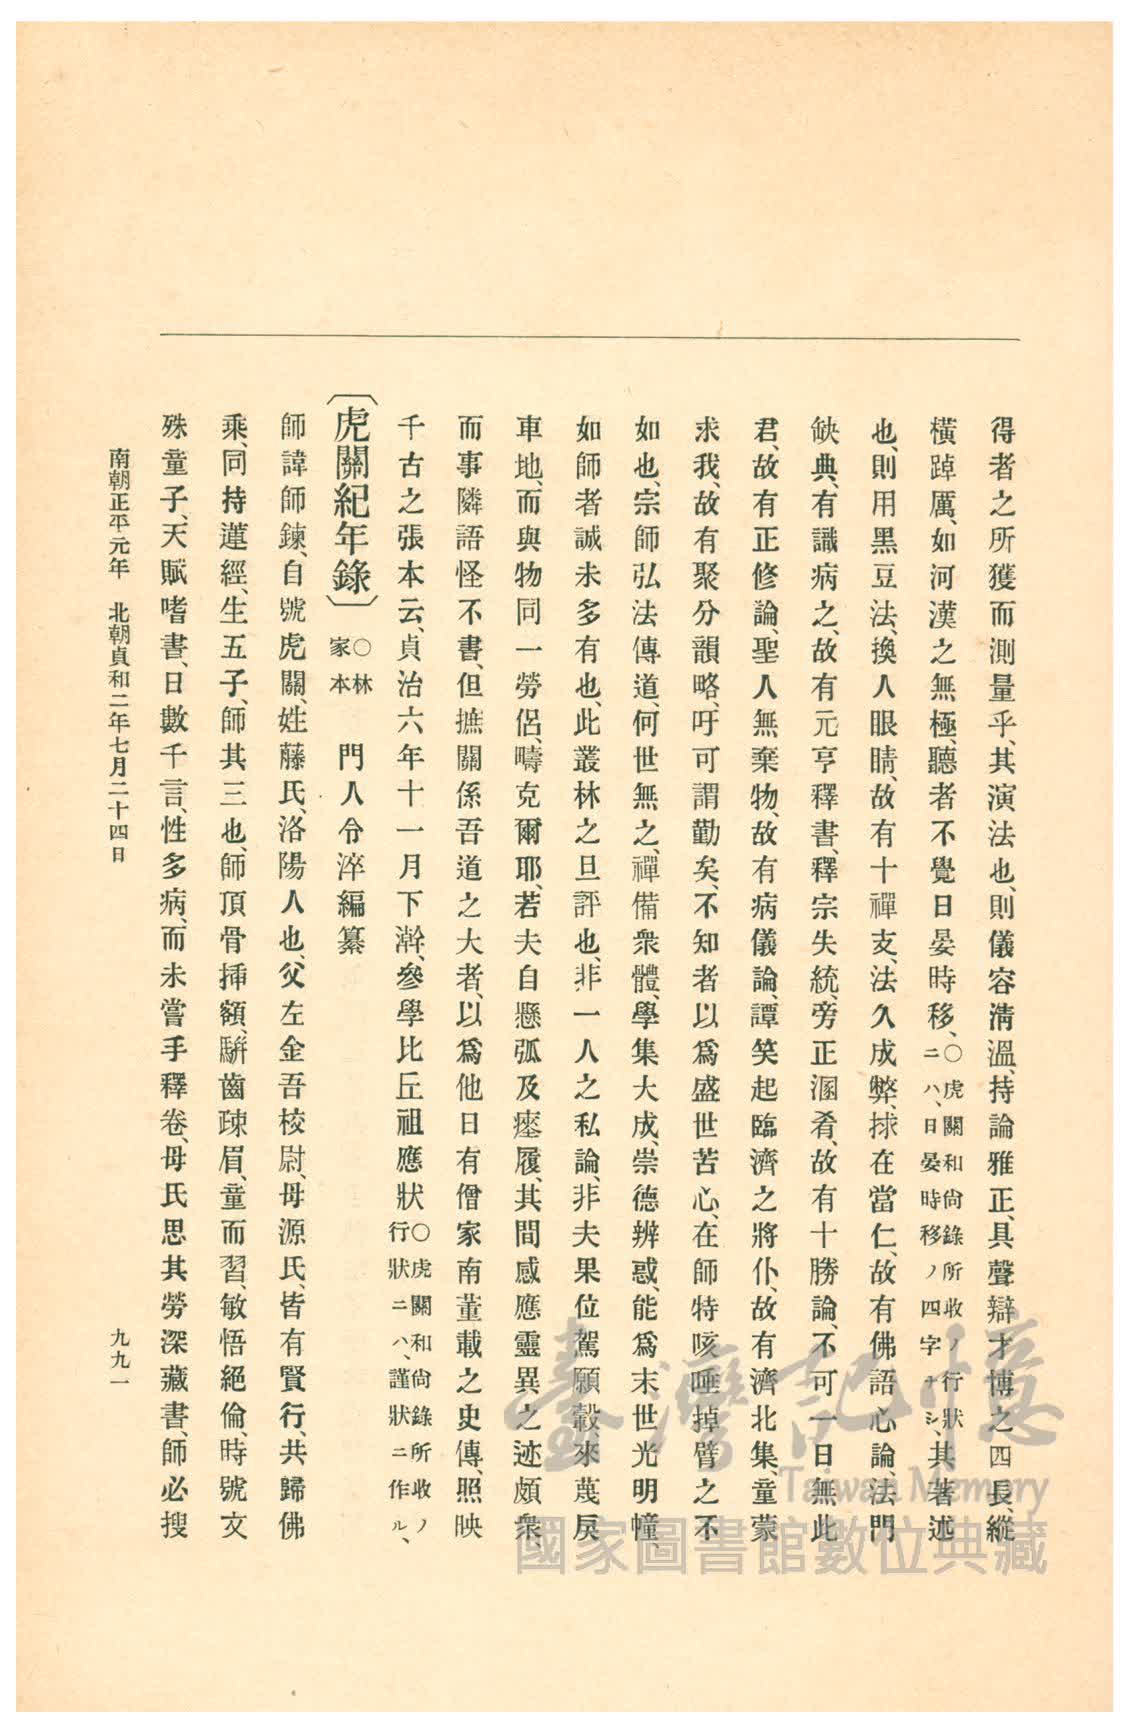 得者之所獲而測量乎、其演法也、則儀容淸溫、持論雅正、具聲辯才博之四長、縱
橫踔厲、如河漢之無極、聽者不覺日晏時移、○虎關和尙錄所收ノ行狀ニハ、日晏時移ノ四字ナシ、其著述
也、則用黑豆法、換人眼睛、故有十禪支、法久成弊、捄在當仁、故有佛語心論、法門
缺典、有識病之、故有元亨釋書、釋宗失統、旁正溷肴、故有十勝論、不可一日無此
君、故有正修論、聖人無棄物、故有病儀論、譚笑起臨濟之將仆、故有濟北集、童蒙
求我、故有聚分韻略、吁可謂勤矣、不知者以爲盛世苦心、在師特咳唾掉臂之不
如也、宗師弘法傳道、何世無之、禪備衆體、學集大成、崇德辨惑、能爲末世光明幢、
如師者誠未多有也、此叢林之旦評也、非一人之私論、非夫果位駕願轂來蔑戾
車地、而與物同一勞侶、疇克爾耶、若夫自懸弧及瘞履、其間感應靈異之迹頗衆、
而事隣語怪不書、但摭關係吾道之大者、以爲他日有僧家南董載之史傳、照映
千古之張本云、貞治六年十一月下澣、參學比丘祖應狀○虎關和尙錄所收ノ行狀ニハ、謹狀ニ作ル、
〔虎關紀年錄〕○林家本 門人令淬編纂
師諱師鍊、自號虎關、姓藤氏、洛陽人也、父左金吾校尉、母源氏、皆有賢行、共歸佛
乘、同持蓮經、生五子、師其三也、師頂骨揷額、騈齒疎眉、童而習、敏悟絕倫、時號文
殊童子、天賦嗜書、日數千言、性多病、而未嘗手釋卷、母氏思其勞深藏書、師必搜
南朝正平元年 北朝貞和二年七月二十四日
九九一
臺灣記憶
Taiwan Memory
國家圖書館數位典藏